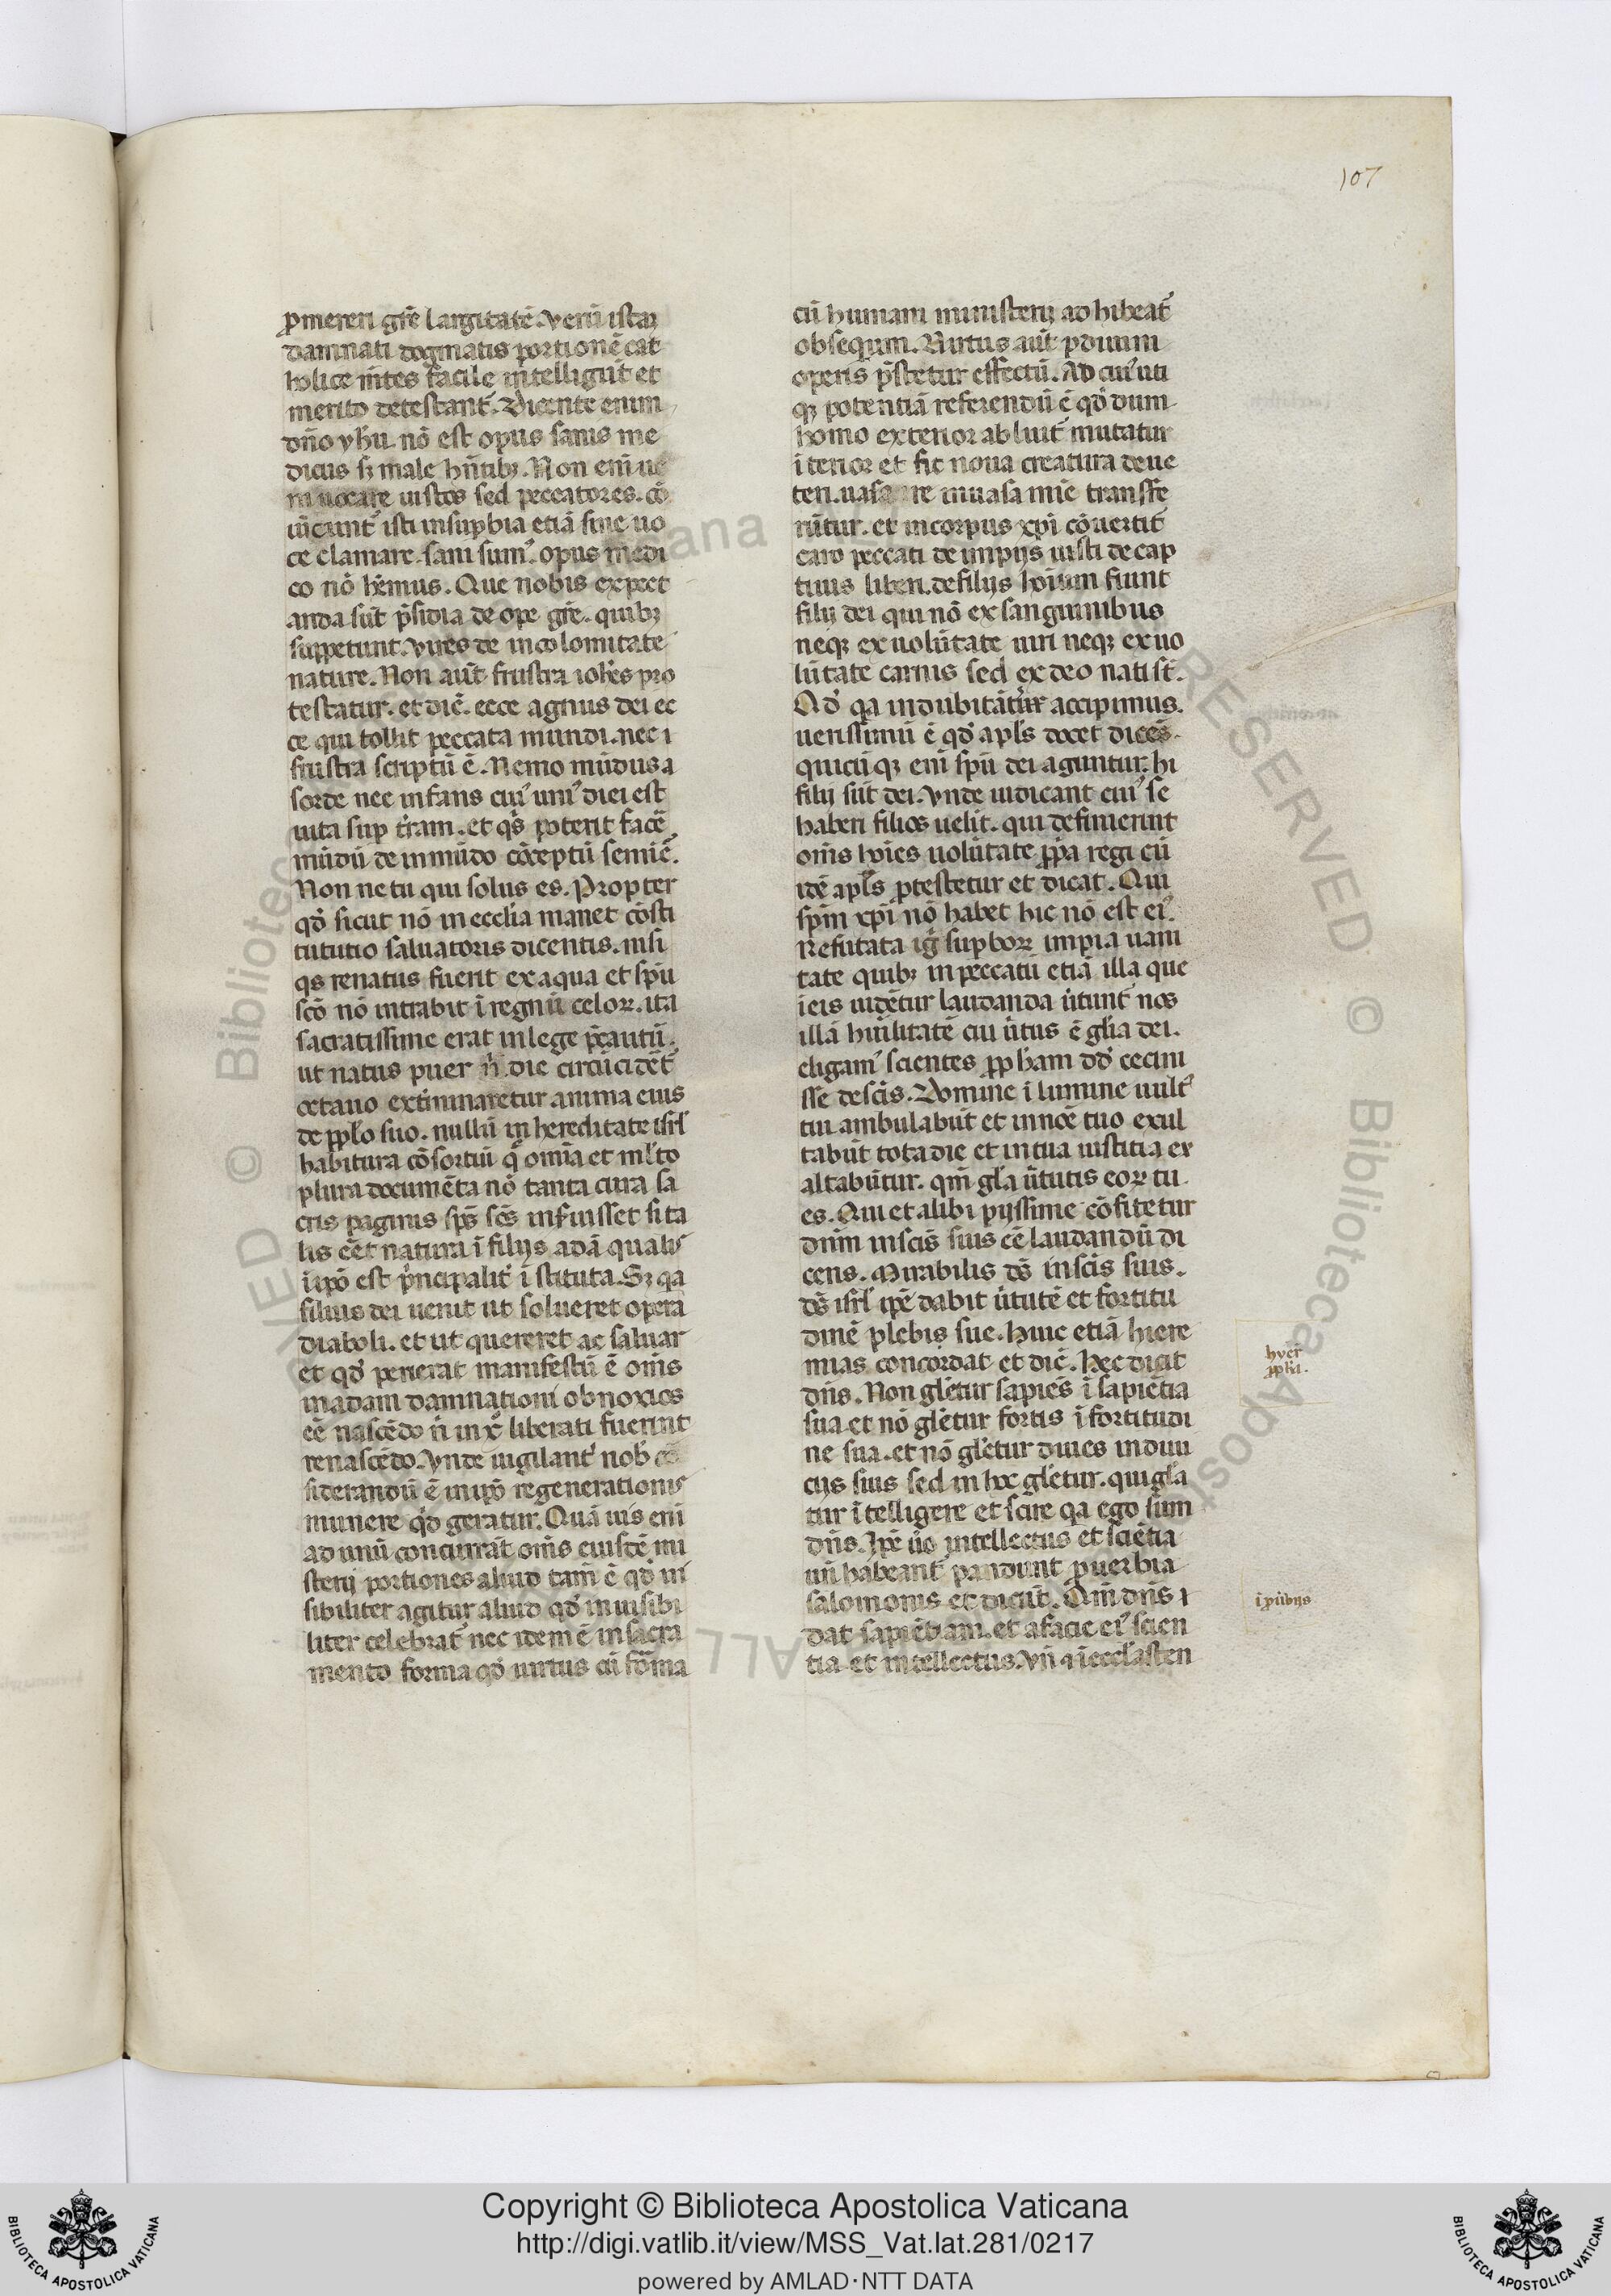 107
ꝓmereri gr̃e largitatẽ. Verũ istaꝝ
damnati dogmatis portionẽ cat
holice m̃tes facile intelligũt et
merito detestant᷑. Dicente enim
dño yhũ. nõ est opus sanis me
dicus sꝫ male hñtibꝫ. Non eni᷑ ue
ni uocare iustos sed peccatores. cõ
uĩcunt᷑ isti insuꝑbia etiã sine uo
ce clamare. sani sum᷒. opus medi
co nõ hẽmus. Que nobis expect
anda sũt p̃sidia de ope gr̃e. quibꝫ
suppetunt. uires de incolomitate
nature. Non aũt frustra ioħes pro
testatur. et dic̃. ecce agnus dei ec
ce qui tollit peccata mundi. nec i
frustra scriptũ ẽ. Nemo mũdus a
sorde nec infans cui᷒ uni᷒ diei est
uita suꝑ tr̃am. et qͥs poterit facẽ
mũdũ de inmũdo cõceptũ semiẽ.
Non ne tu qui solus es. Propter
qđ sicut nõ in ecclia manet cõsti
tututio saluatoris dicentis. nisi
qs renatus fuerit ex aqua et spũ
scõ nõ intrabit ĩ regnũ celoꝝ. ita
sacratissime erat in lege p̃cautũ.
ut natus puer ñ die circũcidẽt᷑
octauo exterminaretur anima eius
de pplo suo. nullũ in hereditate isrl
habitura cõsortiũ q̃ omĩa et ml̃to
plura documẽta nõ tanta cura sa
cris paginis sps̃ scs̃ infuisset si ta
lis eẽt natura ĩ filijs adã qualis
ĩ ipõ est pͥncipalit᷑ ĩ stituta. Sꝫ qa
filius dei uenit ut solueret opera
diaboli. et ut quereret ac saluar
et qđ perierat manifestũ ẽ om̃s
in adam damnationi obnoxios
eẽ nascẽdo ñ in xͦ liberati fuerint
renascẽdo. Vnde uigilant᷑ nob̃ cõ
siderandũ ẽ in ipõ regenerationis
munere qͥd geratur. Quã uis eni
ad unũ concurrãt om̃s eiusdẽ mi
sterij portiones aliud tam̃ ẽ qđ ui
sibiliter agitur aliud qđ inuisibi
liter celebrat᷑ nec idem ẽ in sacra
mento forma qđ uirtus cũ forma
cũ humani ministerij adhibeat᷑
obsequium. Virtus aũt ꝑ diuini
operis p̃stetur effectũ. Ad cui᷒ uti
qꝫ potentiã referendũ ẽ qđ dum
homo exterior abluit᷑ mutatur
ĩterior et fit noua creatura de ue
teri. uasa ire in uasa mie transfe
rũtur. et in corpus xp̃i cõuertit᷑
caro peccati de impijs iusti de cap
tiuis liberi. de filijs hoĩum fiunt
filij dei qui nõ ex sanguinibus
neqꝫ ex uolũtate uiri neqꝫ ex uo
lũtate carnis sed ex deo nati sť.
Qđ qa indubitãt᷑ accipimus.
uerissimũ ẽ qđ apls̃ docet dicẽs.
quicũ qꝫ eni spũ dei aguntur. hi
filij sũt dei. Vnde iudicant cui᷒ se
haberi filios uelit. qui definierint
om̃s hoĩes uolũtate ꝓpa regi cũ
idẽ apls̃ ꝓtestetur et dicat. Qui
spm̃ xp̃i nõ habet hic nõ est ei᷒.
Refutata ig̃ suꝑboꝝ impia uani
tate quibꝫ in peccatũ etiã illa que
ĩ eis uidẽtur laudanda ũtunt᷑ nos
illã hũilitatẽ cui ũtus ẽ gl̃ia dei.
eligam᷒ scientes ꝓpħam dđ cecini
sse de scĩs. Domine ĩ lumine uult᷒
tui ambulabũt et in noĩe tuo exul
tabũt tota die et in tua iustitia ex
altabũtur. qm̃ gl̃a ũtutis eoꝝ tu
es. Qui et alibi pijssime cõfitetur
dnm̃ in scĩs suis eẽ laudandũ di
cens. Mirabilis ds̃ in scĩs suis.
ds̃ isrl ipẽ dabit ũtutẽ et fortitu
dinẽ plebis sue. Huic etiã hiere
mias concordat et dic̃. Hec dicit
dñs. Non gl̃etur sapiẽs ĩ sapiẽtia
sua et nõ gl̃etur fortis ĩ fortitudi
ne sua. et nõ gl̃etur diues in diui
cijs suis sed in hoc gl̃etur. qui gl̃a
tur ĩtelligere et scire qa ego sum
dñs. Ipẽ ũo intellectus et sciẽtia
uñ habeant᷑ pandunt ꝓuerbia
salomonis et dicũt. Qm̃ dñs
dat sapiẽtiam. et a facie ei᷒ scien
tia et intellectus. Vñ ĩ eccl̃asten
hyer
ꝓph̃i.
ĩ ꝓũbijs
Copyright © Biblioteca Apostolica Vaticana
http://digi.vatlib.it/view/MSS_Vat.lat.281/0217
powered by AMLAD·NTT DATA
BIBLIOTECA APOSTOLICA VATICANA
BIBLIOTECA APOSTOLICA VATICANA